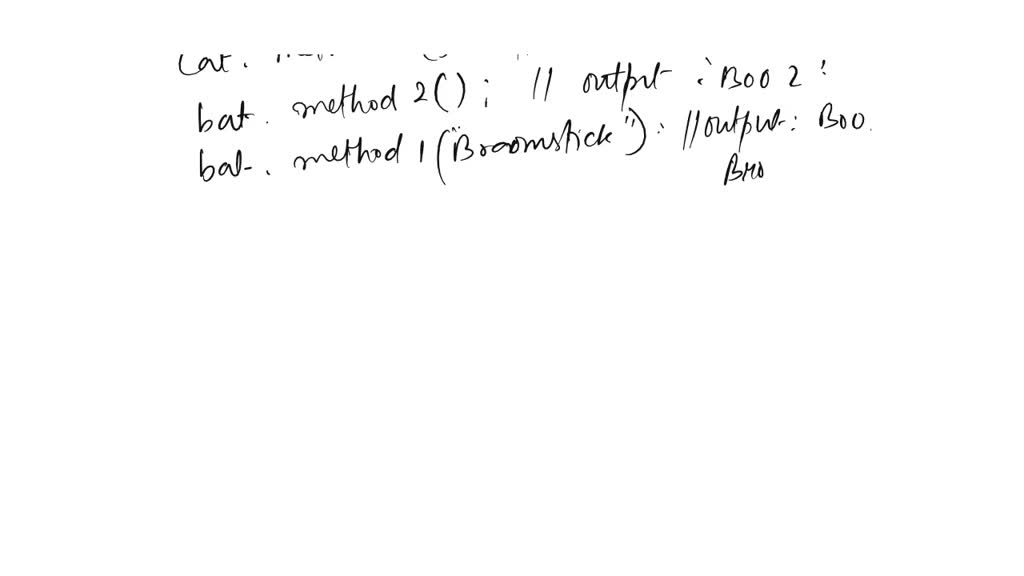 bat. method 2(); // output : Boo 2 !
bat. method 1("Broomstick"): // output: Boo.
Bro